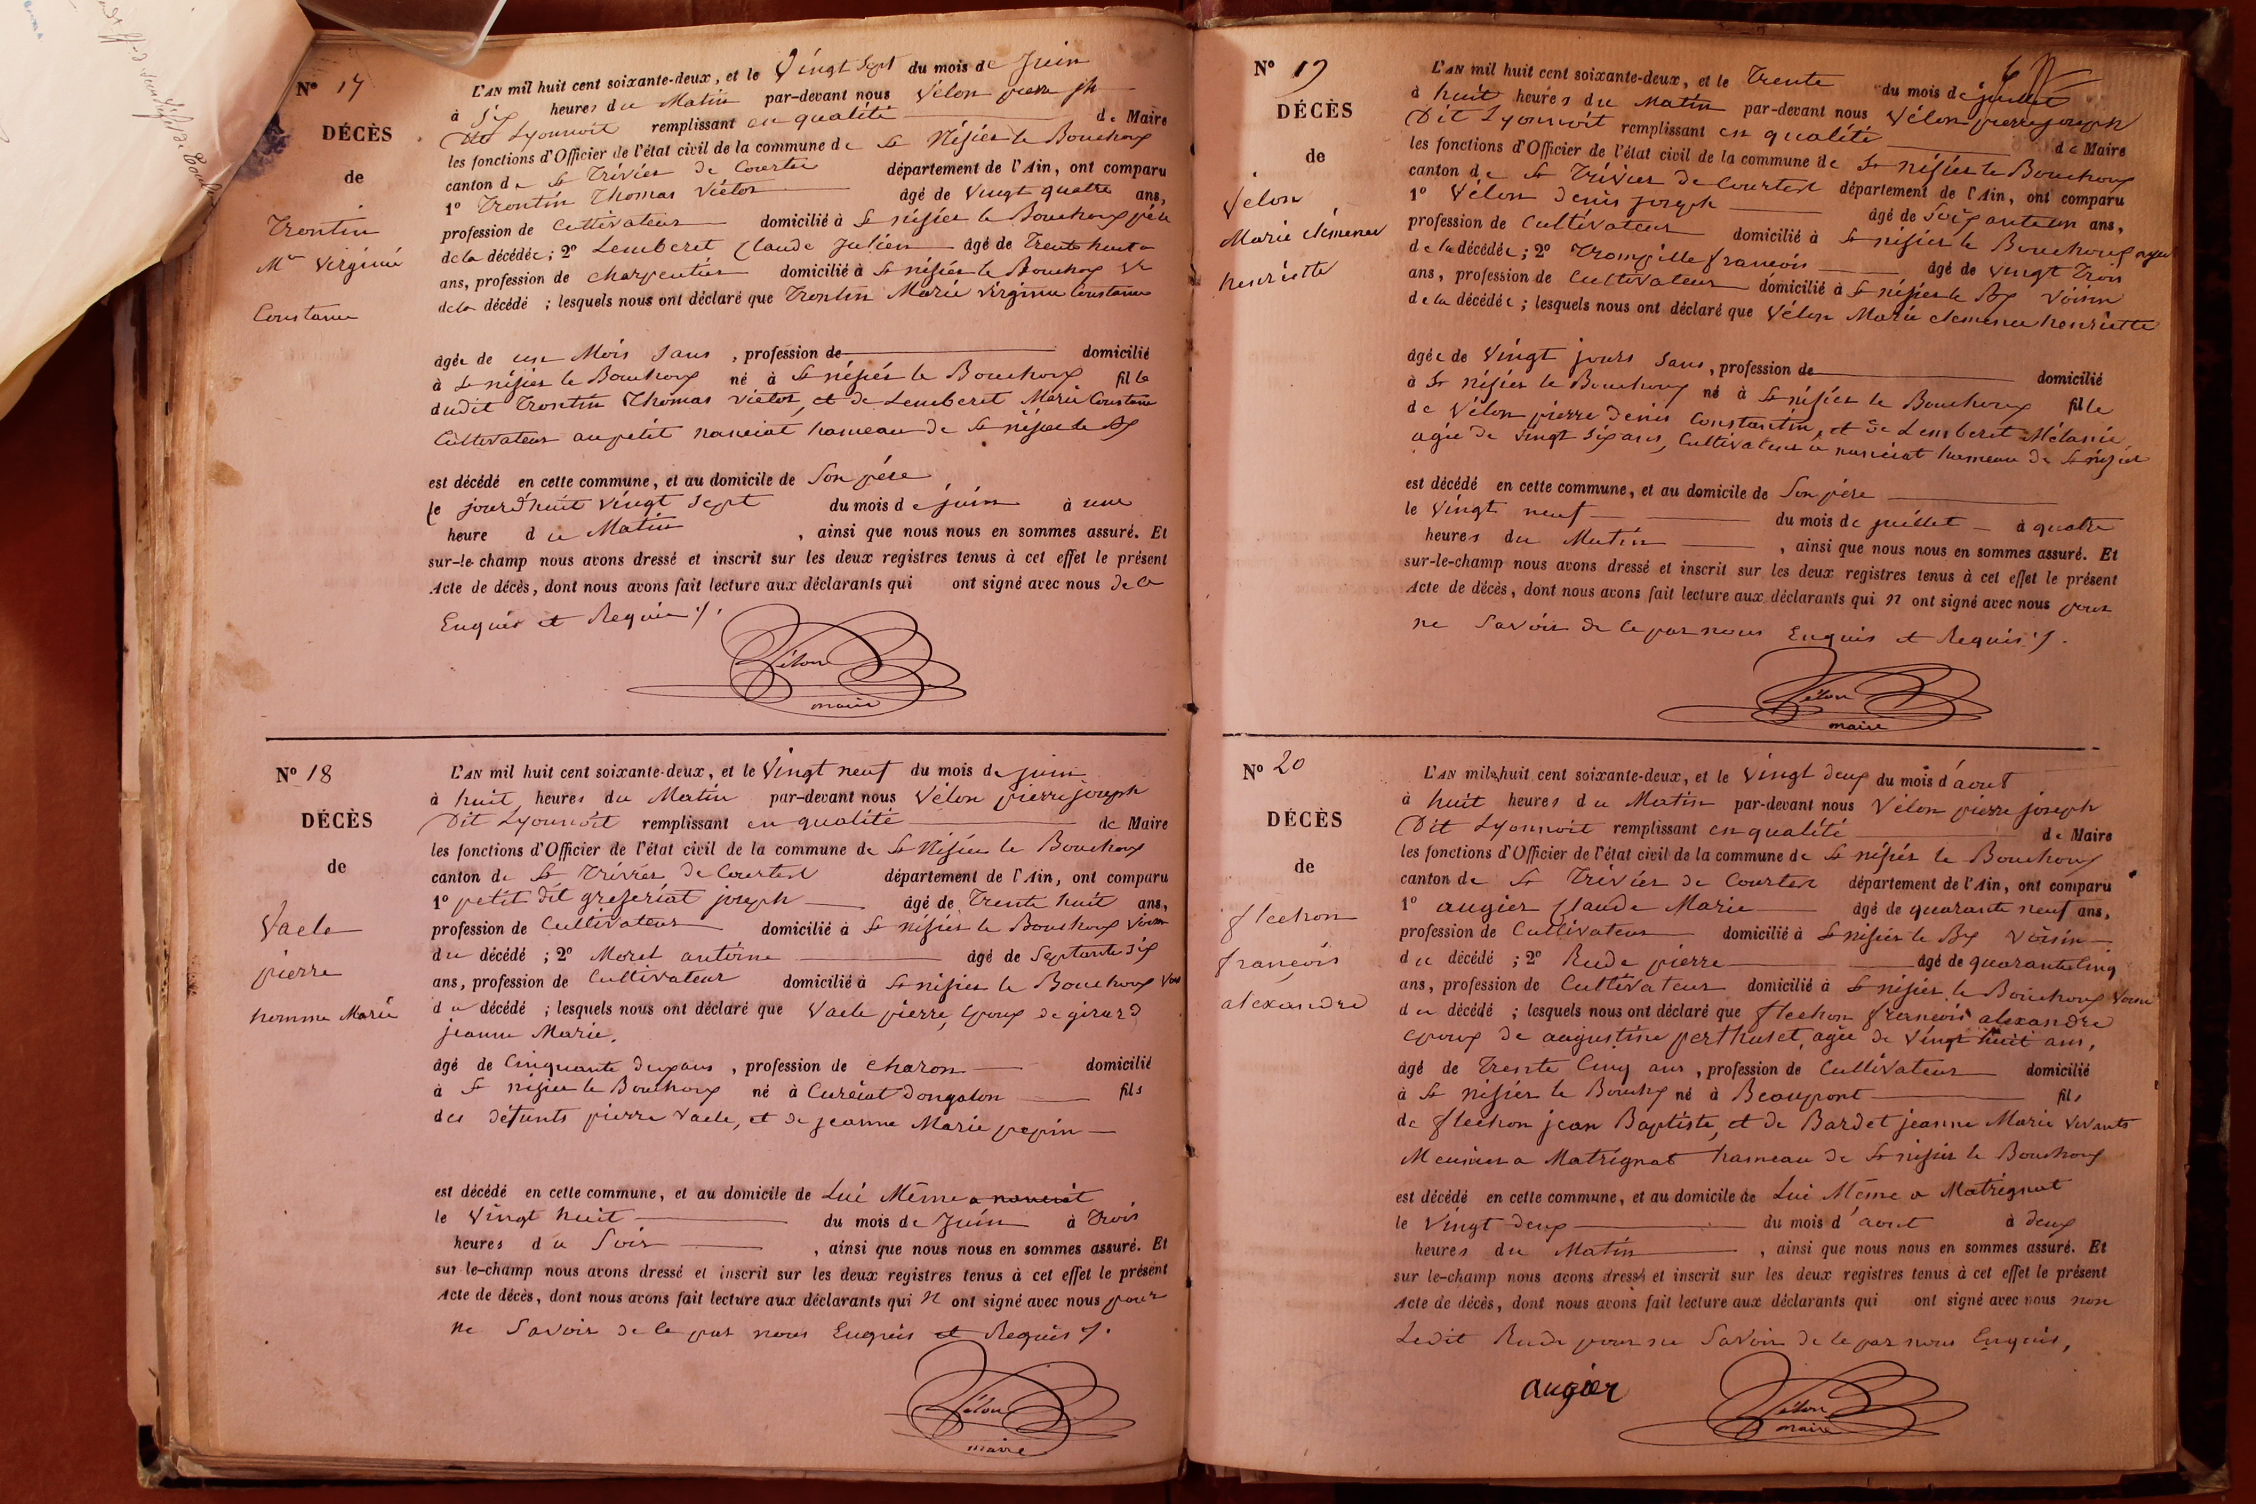 Nº 17
DÉCÈS
de
Trontin
Mie Virginie
Constance
L'AN mil huit cent soixante-deux, et le Vingt Sept du mois de Juin
à Six heures du Matin par-devant nous Vélon pierre jh
Dit Lyonnoit remplissant en qualité de Maire
les fonctions d'Officier de l'état civil de la commune de St Nisier le Bouchoux
canton de St Trivier de Courtes département de l'Ain, ont comparu
1º Trontin Thomas Victor âgé de Vingt quatre ans,
profession de Cultivateur domicilié à St nisier le Bouchoux père
de la décédée ; 2º Lemberet Claude Julien âgé de Trente huit
ans, profession de charpentier domicilié à St nisier le Bouchoux
de la décédé ; lesquels nous ont déclaré que Trontin Marie Virginie Constance
âgée de un Mois Sans , profession de domicilié
à St nisier le Bouchoux né à St nisier le Bouchoux fille
dudit Trontin Thomas Victor, et de Lemberet Marie Constance
Cultivateur au petit nanciat hameau de St nisier le Bx
est décédé en cette commune, et au domicile de Son père
le jourd'huit vingt Sept du mois de juin à une
heure du Matin , ainsi que nous nous en sommes assuré. Et
sur-le-champ nous avons dressé et inscrit sur les deux registres tenus à cet effet le présent
Acte de décès, dont nous avons fait lecture aux déclarants qui ont signé avec nous de ce
Enquis et Requis ./.
Vélon
maire
Nº 18
DÉCÈS
de
Vacle
pierre
homme Marié
L'AN mil huit cent soixante-deux, et le Vingt neuf du mois de juin
à huit heures du Matin par-devant nous Vélon pierre joseph
Dit Lyonnoit remplissant en qualité de Maire
les fonctions d'Officier de l'état civil de la commune de St Nisier le Bouchoux
canton de St Trivier de Courtes département de l'Ain, ont comparu
1º petit dit greferiat joseph âgé de Trente huit ans,
profession de Cultivateur domicilié à St nisier le Bouchoux Voisin
du décédé ; 2º Moret antoine âgé de Septante Six
ans, profession de Cultivateur domicilié à St nisier le Bouchoux Vois
du décédé ; lesquels nous ont déclaré que Vacle pierre, Epoux de girard
jeanne Marie,
âgé de Cinquante deux ans , profession de Charon domicilié
à St nisier le Bouchoux né à Curciat Dongalon fils
des défunts pierre Vacle, et de jeanne Marie pepin
est décédé en cette commune, et au domicile de Lui Même a nanciat
le Vingt huit du mois de Juin à Trois
heures du Soir , ainsi que nous nous en sommes assuré. Et
sur le-champ nous avons dressé et inscrit sur les deux registres tenus à cet effet le présent
Acte de décès, dont nous avons fait lecture aux déclarants qui n ont signé avec nous pour
ne Savoir de ce par nous Enquis et Requis ./.
Vélon
maire
Nº 19
DÉCÈS
de
Vélon
Marie clemence
henriette
L'AN mil huit cent soixante-deux, et le Trente du mois de juillet
à huit heures du Matin par-devant nous Vélon pierre joseph
Dit Lyonnoit remplissant en qualité de Maire
les fonctions d'Officier de l'état civil de la commune de St nisier le Bouchoux
canton de St Trivier de Courtes département de l'Ain, ont comparu
1º Vélon Denis joseph âgé de Soixante un ans,
profession de Cultivateur domicilié à St nisier le Bouchoux ayeul
de la décédée ; 2º Trompille francois âgé de Vingt Trois
ans, profession de Cultivateur domicilié à St nisier le Bx Voisin
de la décédée ; lesquels nous ont déclaré que Vélon Marie clemence henriette
âgée de Vingt jours Sans , profession de domicilié
à St nisier le Bouchoux né à St nisier le Bouchoux fille
de Vélon pierre Denis Constantin, et de Lemberet Mélanie
agée de Vingt Six ans, Cultivateur à nanciat hameau de St nisier
est décédé en cette commune, et au domicile de Son père
le Vingt neuf du mois de juillet à quatre
heures du Matin , ainsi que nous nous en sommes assuré. Et
sur-le-champ nous avons dressé et inscrit sur les deux registres tenus à cet effet le présent
Acte de décès, dont nous avons fait lecture aux déclarants qui n ont signé avec nous pour
ne Savoir de ce par nous Enquis et Requis ./.
Vélon
maire
Nº 20
DÉCÈS
de
flechon
françois
alexandre
L'AN mil huit cent soixante-deux, et le Vingt deux du mois d'aout
à huit heures du Matin par-devant nous Vélon pierre joseph
Dit Lyonnoit remplissant en qualité de Maire
les fonctions d'Officier de l'état civil de la commune de St nisier le Bouchoux
canton de St Trivier de Courtes département de l'Ain, ont comparu
1º augier Claude Marie âgé de quarante neuf ans,
profession de Cultivateur domicilié à St nisier le Bx Voisin
du décédé ; 2º Rude pierre âgé de quarante Cinq
ans, profession de Cultivateur domicilié à St nisier le Bouchoux Voisin
du décédé ; lesquels nous ont déclaré que flechon francois alexandre
epoux de augustine perthuset, agée de Vingt huit ans,
âgé de Trente Cinq ans , profession de Cultivateur domicilié
à St nisier le Bouchx né à Beaupont fils
de flechon jean Baptiste, et de Bardet jeanne Marie Vivants
Meunier a Matrignat hameau de St nisier le Bouchoux
est décédé en cette commune, et au domicile de Lui Même a Matrignat
le Vingt deux du mois d'aout à deux
heures du Matin , ainsi que nous nous en sommes assuré. Et
sur le-champ nous avons dressé et inscrit sur les deux registres tenus à cet effet le présent
Acte de décès, dont nous avons fait lecture aux déclarants qui ont signé avec nous non
Ledit Rude pour ne Savoir de ce par nous Enquis,
augier
Vélon
maire